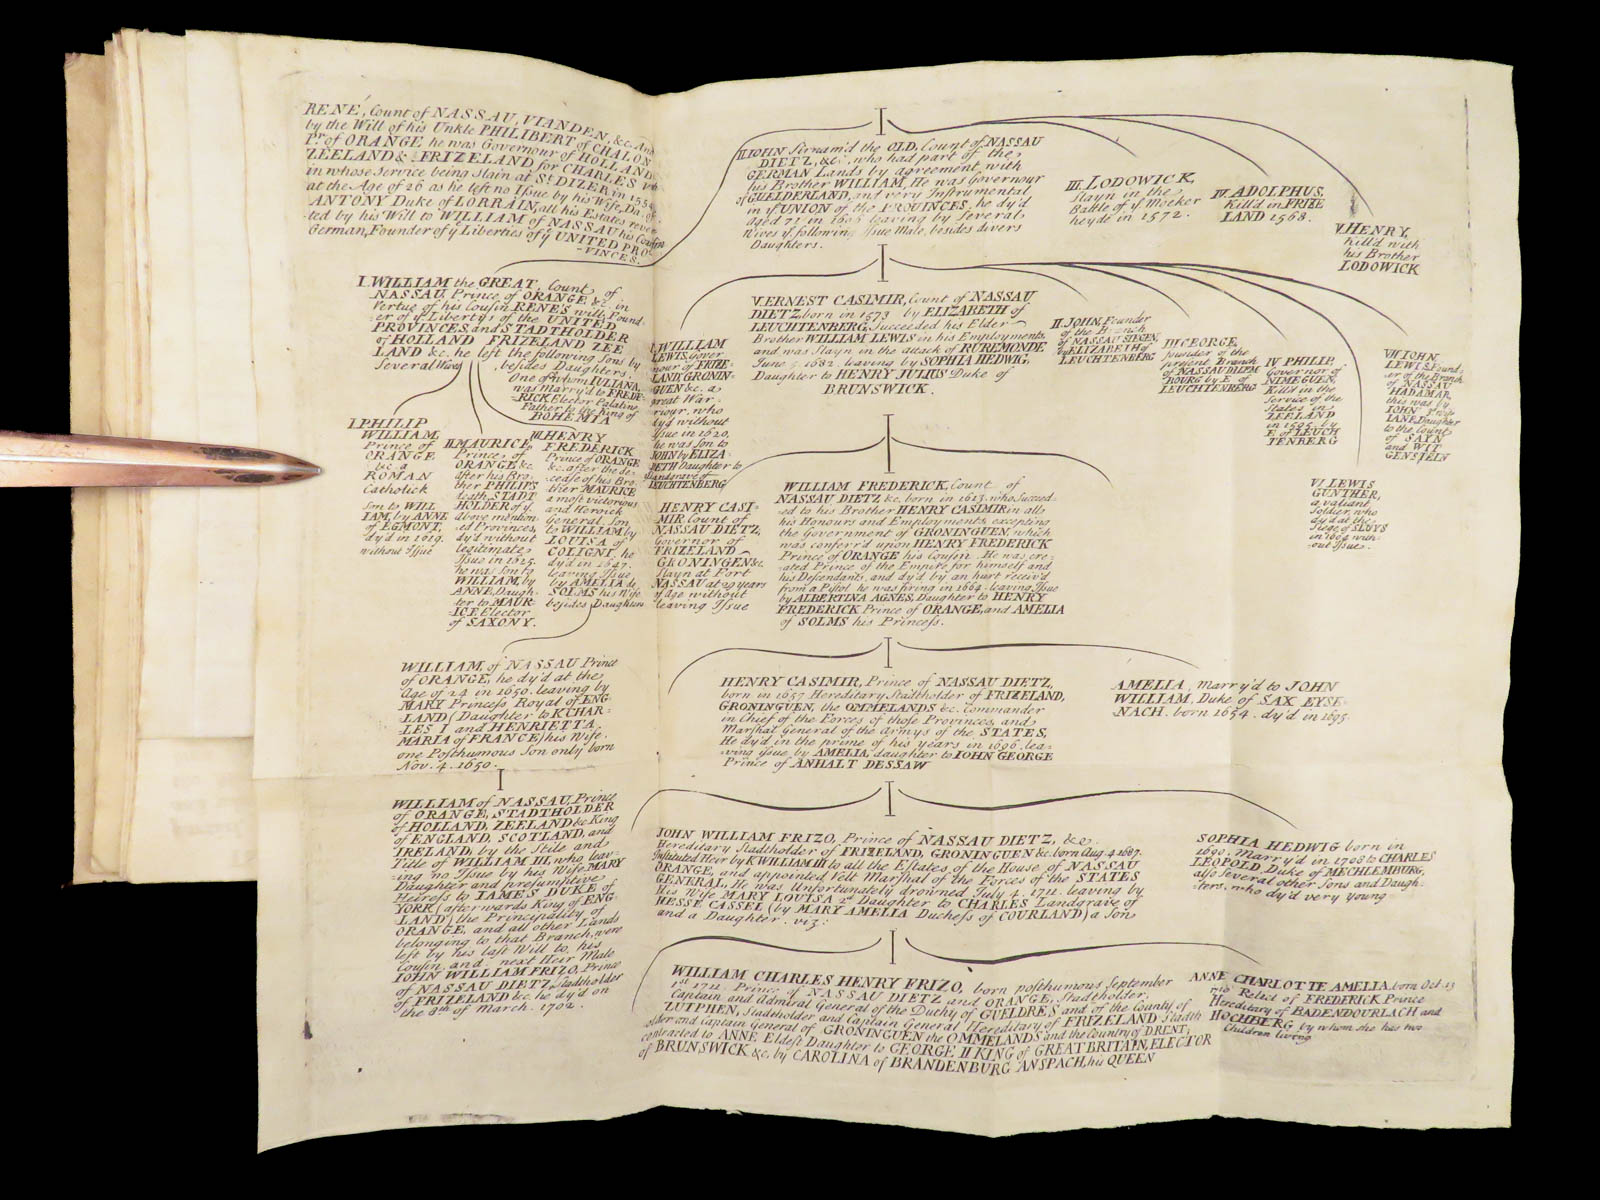 RENÉ, Count of NASSAU, VIANDEN, &c. And
by the Will of his Unkle PHILIBERT of CHALON
Pr. of ORANGE he was Governour of HOLLAND
ZEELAND & FRIZELAND for CHARLES
in whose Service being Slain at St DIZER in 1554
at the Age of 26 as he left no Issue by his Wife, Da. of
ANTONY Duke of LORRAIN, all his Estates rever-
-ted by his Will to WILLIAM of NASSAU his Cousin
German, Founder of ÿ Liberties of ÿ UNITED PRO-
-VINCES.
I. WILLIAM the GREAT, Count of
NASSAU, Prince of ORANGE &c. in
Vertue of his Cousin RENE'S will, Found-
-er of ÿ Libertys of the UNITED
PROVINCES, and STADTHOLDER
of HOLLAND FRIZELAND ZEE
LAND &c. he left the following Sons by
Several Wives, besides Daughters.
One of whom IULIANA,
was Marry'd to FREDE-
-RICK Elector Palatine
Father to the King of
BOHMIA
I. PHILIP
WILLIAM,
Prince of
ORANGE
&c a
ROMAN
Catholick
Son to WILL
IAM, by ANNE
of EGMONT,
dy'd in 1619.
without Issue
II. MAURICE,
Prince of
ORANGE &c.
after his Bro-
ther PHILIPS
death, STADT
HOLDER of ÿ
above mention
-ed Provinces,
dy'd without
legitimate
Issue in 1625.
he was Son to
WILLIAM, by
ANNE, Daugh-
-ter to MAUR-
-ICE, Elector
of SAXONY.
III. HENRY
FREDERICK
Prince of ORANGE
&c. after the de-
-cease of his Bro-
ther MAURICE
a most victorious
and Heroick
General, Son
to WILLIAM by
LOUISA of
COLIGNI, he
dy'd in 1647.
leaving Issue
by AMELIA de
SOLMS his Wife
besides Daughters
WILLIAM, of NASSAU Prince
of ORANGE, he dy'd at the
Age of 24 in 1650. leaving by
MARY Princess Royal of ENG-
LAND (Daughter to K CHAR-
-LES I and HENRIETTA
MARIA of FRANCE) his Wife.
one Posthumous Son only born
Nov. 4. 1650.
WILLIAM of NASSAU, Prince
of ORANGE, STADTHOLDER
of HOLLAND, ZEELAND &c. King
of ENGLAND, SCOTLAND, and
IRELAND, by the Stile and
Title of WILLIAM III, who leav-
-ing no Issue by his Wife MARY
Daughter and presumptive
Heiress to IAMES DUKE of
YORK (afterwards King of ENG-
LAND) the Principality of
ORANGE, and all other Lands
belonging to that Branch, were
left by his last Will to his
Cousin and next Heir Male
IOHN WILLIAM FRIZO, Prince
of NASSAU DIETZ, Stadtholder
of FRIZELAND &c. he dy'd on
the 8th of March. 1702.
II. IOHN Sirnam'd the OLD, Count of NASSAU
DIETZ, &c. who had part of the
GERMAN Lands by agreement with
his Brother WILLIAM, He was Governour
of GUELDERLAND, and very Instrumental
in ÿ UNION of the PROVINCES, he dy'd
Aged 71 in 1606 leaving by Several
Wives ÿ following Issue Male, besides divers
Daughters.
III. LODOWICK,
Slayn in the
Battle of ÿ Moeker
heyde in 1572.
IV. ADOLPHUS,
Kill'd in FRIZE
LAND 1568.
V. HENRY,
kill'd with
his Brother
LODOWICK
I. WILLIAM
LEWIS, Gover
nour of FRIZE-
LAND, GRONIN-
GUEN &c. a
great War-
riour, who
dy'd without
Issue in 1620,
he was Son to
JOHN by ELIZA-
BETH Daughter to
Landgrave of
LEUCHTENBERG
V. ERNEST CASIMIR, Count of NASSAU
DIETZ, born in 1573 by ELIZABETH of
LEUCHTENBERG, Succeeded his Elder
Brother WILLIAM LEWIS in his Employments,
and was Slayn in the attack of RUREMONDE
June 1682. leaving by SOPHIA HEDWIG,
Daughter to HENRY JULIUS Duke of
BRUNSWICK.
II. JOHN, Founder
of the Branch
of NASSAU SIEGEN,
by ELIZABETH of
LEUCHTENBERG
III. GEORGE,
founder of the
present Branch
of NASSAU DILEM
BOURG by E. of
LEUCHTENBERG
IV PHILIP,
Governor of
NIMEGUEN,
Kill'd in the
Service of the
States in
ZEELAND
in 1595. by
E. of LEUCH
TENBERG
VII JOHN
LEWIS, Found-
er of the Branch
of NASSAU
HADAMAR,
this was by
JOHN
IANE, Daughter
to the Count
of SAYN
and WIT
GENSTEIN
VI LEWIS
GUNTHER,
a valiant
Soldier, who
dy'd at the
Siege of SLUYS
in 1604 with-
-out Issue.
HENRY CASI-
MIR Count of
NASSAU DIETZ,
Governor of
FRIZELAND
GRONINGEN &c.
Slayn at Fort
NASSAU at 29 years
of Age without
leaving Issue
WILLIAM FREDERICK, Count of
NASSAU DIETZ &c. born in 1613. who Succeed-
-ed to his Brother HENRY CASIMIR in all
his Honours and Employments, excepting
the Government of GRONINGUEN, which
was conferr'd upon HENRY FREDERICK
Prince of ORANGE his Cousin. He was cre-
-ated Prince of the Empire for himself and
his Descendants, and dy'd by an hurt receiv'd
from a Pistol he was firing in 1664. leaving Issue
by ALBERTINA AGNES, Daughter to HENRY
FREDERICK Prince of ORANGE, and AMELIA
of SOLMS his Princess.
HENRY CASIMIR, Prince of NASSAU DIETZ,
born in 1657 Hereditary Stadtholder of FRIZELAND,
GRONINGUEN, the OMMELANDS &c. Commander
in Chief of the Forces of those Provinces, and
Marshal General of the Armys of the STATES,
He dy'd in the prime of his years in 1696. lea-
-ving Issue by AMELIA, daughter to IOHN GEORGE
Prince of ANHALT DESSAW
AMELIA, Marry'd to JOHN
WILLIAM, Duke of SAX EYSE-
NACH. born 1654. dy'd in 1695.
JOHN WILLIAM FRIZO, Prince of NASSAU DIETZ, &c.
Hereditary Stadtholder of FRIZELAND, GRONINGUEN &c. born Aug. 4. 1687.
Instituted Heir by K WILLIAM III to all the Estates of the House of NASSAU
ORANGE, and appointed Velt Marshal of the Forces of the STATES
GENERAL, He was Unfortunately drowned July 4. 1711. leaving by
His Wife MARY LOUISA 2d Daughter to CHARLES Landgrave of
HESSE CASSEL (by MARY AMELIA Duchess of COURLAND) a Son
and a Daughter. viz:
SOPHIA HEDWIG born in
1690. Marry'd in 1708 to CHARLES
LEOPOLD, Duke of MECHLEMBURG,
also Several other Sons and Daugh-
-ters. who dy'd very young
WILLIAM CHARLES HENRY FRIZO, born posthumous September
1st 1711. Prince of NASSAU DIETZ and ORANGE, Stadtholder,
Captain and Admiral General of the Duchy of GUELDRES and of the County of
ZUTPHEN, Stadholder and Captain General Hereditary of FRIZELAND Stadth
older and Captain General of GRONINGUEN the OMMELANDS and the Country of DRENT,
contracted to ANNE Eldest Daughter to GEORGE II KING of GREAT BRITAIN, ELECTOR
of BRUNSWICK &c. by CAROLINA of BRANDENBURG ANSPACH, his QUEEN
ANNE CHARLOTTE AMELIA. born Oct. 13
1710 Relict of FREDERICK Prince
Hereditary of BADENDOURLACH and
HOCHBERG by whom she has two
Children living